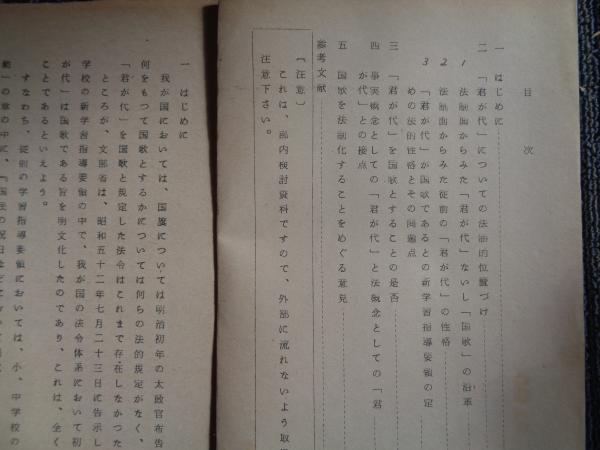 目次
一 はじめに
二 「君が代」についての法制的位置づけ
1 法制面からみた「君が代」ないし「国歌」の沿革
2 法制面からみた従前の「君が代」の性格
3 「君が代」が国歌であるとの新学習指導要領の定
めの法的性格とその問題点
三 「君が代」を国歌とすることの是否
四 事実概念としての「君が代」と法概念としての「君
が代」との接点
五 国歌を法制化することをめぐる意見
参考文献
〔注意〕
これは、部内検討資料ですので、外部に流れないよう取
注意下さい。
一 はじめに
我が国においては、国旗については明治初年の太政官布告
何をもつて国歌とするかについては何らの法的規定がなく、
「君が代」を国歌と規定した法令はこれまで存在しなかつた
ところが、文部省は、昭和五十二年七月二十三日に告示し
学校の新学習指導要領の中で、我が国の法令体系において初
が代」は国歌である旨を明文化したのであり、これは、全く
ことであるといえよう。
すなわち、従前の学習指導要領においては、小、中学校の
の章の中に、「国民の祝日などにおいて